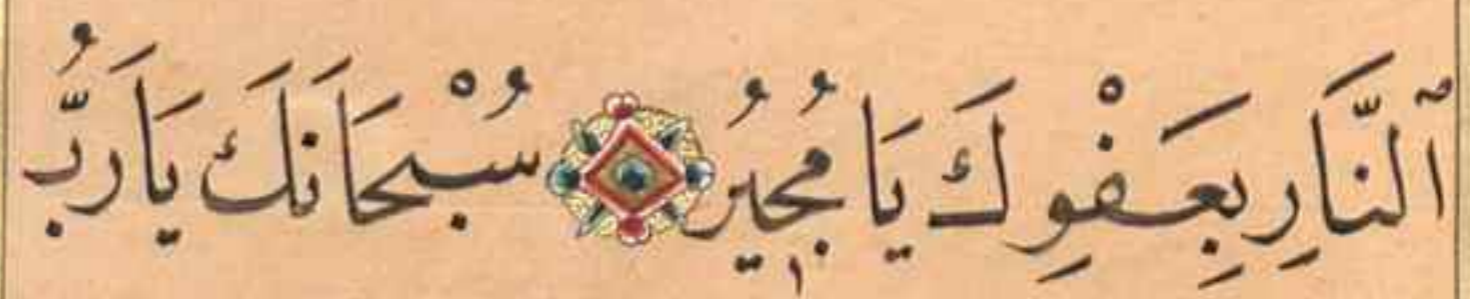 ٱلنَّارِ بِعَفْوِكَ يَا مُجِيرُ سُبْحَانَكَ يَا رَبُّ